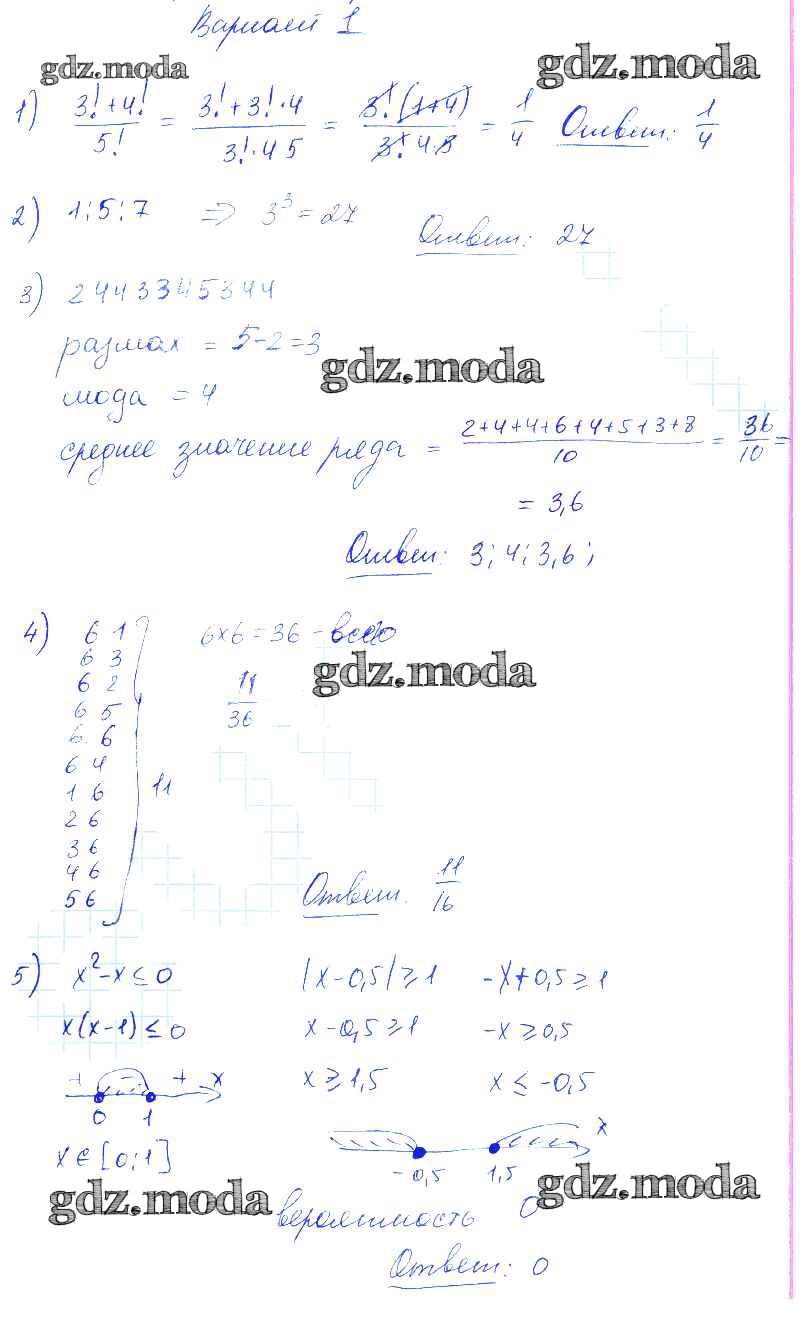 Вариант 1
gdz.moda gdz.moda
1) (3! + 4!)/5! = (3! + 3! · 4)/(3! · 4 5) = (3! (1+4))/(3! 4 · 5) = 1/4 Ответ: 1/4
2) 1; 5; 7 ⇒ 3³ = 27 Ответ: 27
3) 2 4 4 3 3 3 4 5 3 4 4
размах = 5-2=3
gdz.moda
мода = 4
среднее значение ряда = (2+4+4+6+4+5+3+8)/10 = 36/10 =
= 3,6
Ответ: 3; 4; 3,6;
4) 6 1 6×6 = 36 - всего
6 3
gdz.moda
6 2 11/36
6 5
6. 6
6 4
1 6 11
2 6
3 6
4 6
5 6 Ответ. 11/16
5) x²-x ≤ 0 |x-0,5| ⩾ 1 -x+0,5 ⩾ 1
x(x-1) ≤ 0 x-0,5 ⩾ 1 -x ⩾ 0,5
+ - + x x ⩾ 1,5 x ≤ -0,5
0 1
x
x ∈ [0;1] -0,5 1,5
gdz.moda gdz.moda
вероятность 0
Ответ: 0